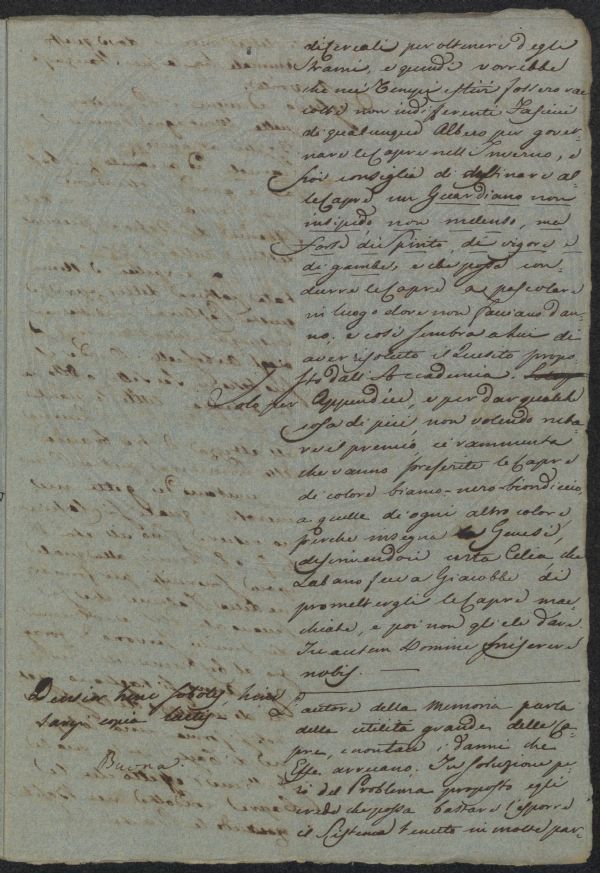 di sercali per ottenere degli
strami, e quindi vorrebbe
che nei Tempi estivi fossero rac
colti non indifferenti Fascine
di qualunque Albero per gover-
nare le Capre nell' Inverno, e
poi consiglia di destinare al
le Capre un Guardiano non
insipido non melenso, ma
forse di spirito, di vigore e
di gambe, e che possa con-
durre le Capre a pascolare
in luogo dove non facciano dan-
no; e così sembra a lui di
aver risoluto il Quesito propo
sto dall' Accademia.
Solo per Appendice, e per dar qualche
cosa di più, non volendo ruba-
re il premio, ci rammenta
che vanno preferite le Capre
di colore bianco-nero-biondiccio,
a quelle di ogni altro colore
perche insegna la Genesi,
descrivendoci certa Celia, che
Labano fece a Giacobbe di
promettergli le Capre mac
chiate, e poi non gliele dare.
Tu autem Domine miserere
nobis.
Densior hinc soboles, hinc
largi copia lactis
Buona
L'autore della Memoria parla
della utilità grande delle Ca-
pre, e non tace i danni che
Esse arrecano. In soluzione pe
rò del Problema proposto egli
crede che possa bastare l'esporre
il Sistema tenuto in molte par-